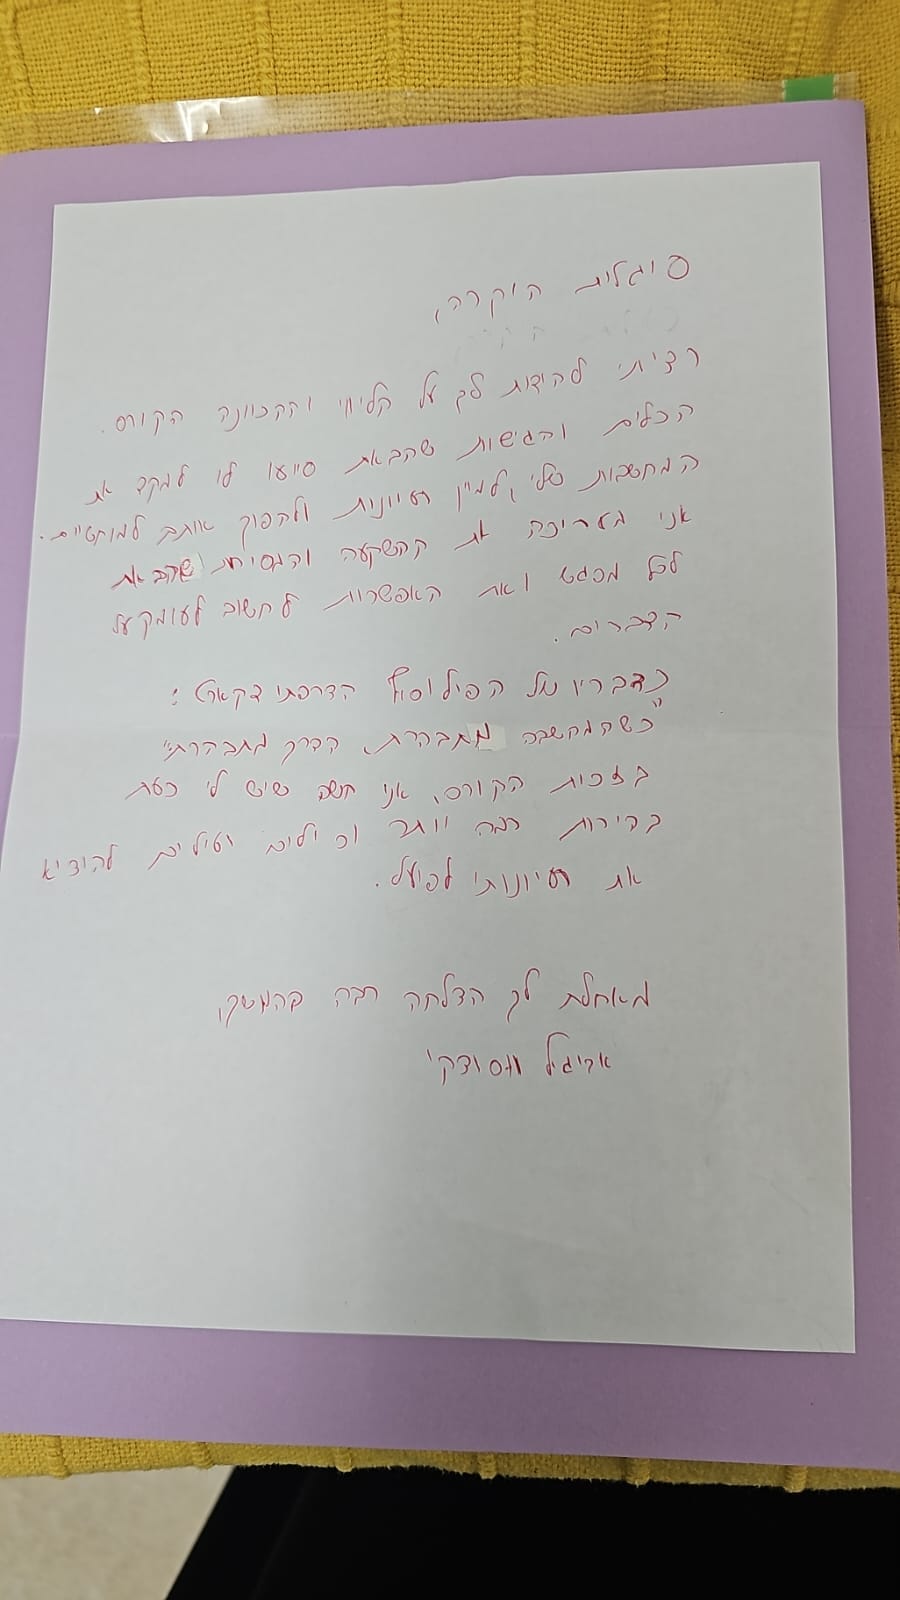 סיגלית היקרה,
רציתי להודות לך על הליווי וההכוונה הקורס.
הכלים והגישות שהבאת סייעו לי למקד את
המחשבות שלי, למיין רעיונות ולהפוך אותם למוקטיים.
אני מעריכה את ההשקעה והמסירות שהבאת
לכל מפגש ואת האפשרות לחשוב לעומק על
הדברים.
כדבריו של הפילוסוף הצרפתי דקארט:
"כשהמחשבה מתבהרת, הדרך מתבהרת".
בזכות הקורס, אני חשה שיש לי כעת
בהירות רבה יותר וכלים יעילים להוציא
את רעיונותי לפועל.
מאחלת לך הצלחה רבה בהמשך,
אביגיל